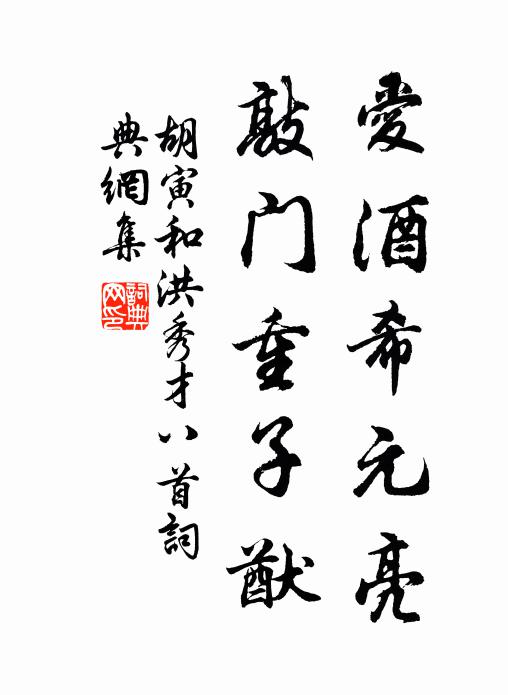 愛酒希元亮
敲门重子猷
胡寅和洪秀才八首詞
典網集
詞典
网印